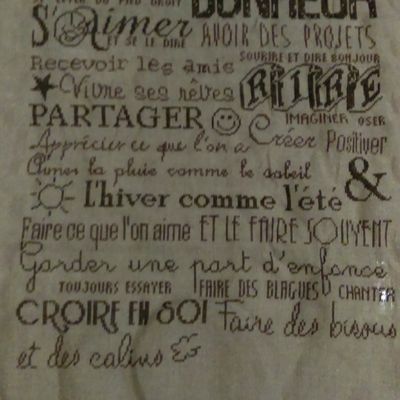 SE LEVER DU PIED DROIT BONHEUR
S'Aimer ET SE LE DIRE AVOIR DES PROJETS
Recevoir les amis SOURIRE ET DIRE BONJOUR
★ Vivre ses rêves RIRE
PARTAGER ☺ IMAGINER OSER
Apprécier ce que l'on a Créer Positiver
Aimer la pluie comme le soleil &
L'hiver comme l'été
Faire ce que l'on aime ET LE FAIRE SOUVENT
Garder une part d'enfance
TOUJOURS ESSAYER FAIRE DES BLAGUES CHANTER
CROIRE EN SOI Faire des bisous
et des calins